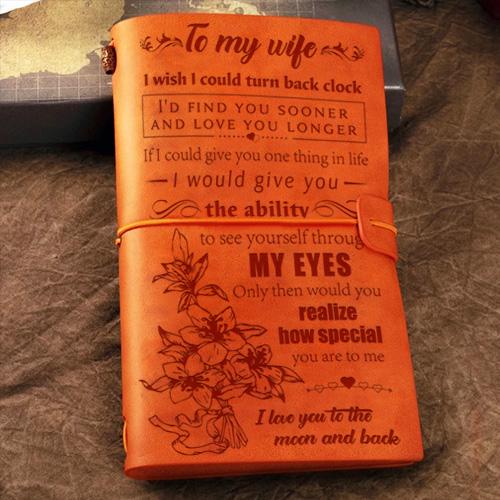 To my wife
I wish I could turn back clock
I'D FIND YOU SOONER
AND LOVE YOU LONGER
If I could give you one thing in life
I would give you
the ability
to see yourself throug
MY EYES
Only then would you
realize
how special
you are to me
I love you to the
moon and back